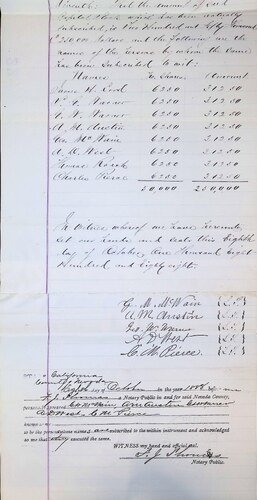 that the amount of said
Capital Stock which has been actually
subscribed is Two Hundred and Fifty Thousand
250,000 Dollars and the following are the
names of the Persons by whom the same
has been Subscribed to wit:
Names No Shares Amount
James W 6250 31250
Warner 6250 31250
Warner 6250 31250
A. M. Austin 6250 31250
Geo McWain 6250 31250
A. D. West 6250 31250
Thomas 6250 31250
Charles Pierce 6250 31250
50,000 250,000
In Witness whereof we have hereunto
set our hands and seals this Eighth
day of October, One Thousand Eight
Hundred and Eighty eight.
G. M. McWain {L.S.}
A. M. Austin {L.S.}
Geo. W. Warner {L.S.}
A D West {L.S.}
C. M. Pierce {L.S.}
California
County of Nevada
Eighth day of October in the year 1888 before me
F. J. Thomas Notary Public in and for said Nevada County,
personally appeared
A D West, C M Pierce
to be the persons whose names are subscribed to the within instrument and acknowledged
to me that they executed the same.
WITNESS my hand and official seal,
F. J. Thomas
Notary Public.